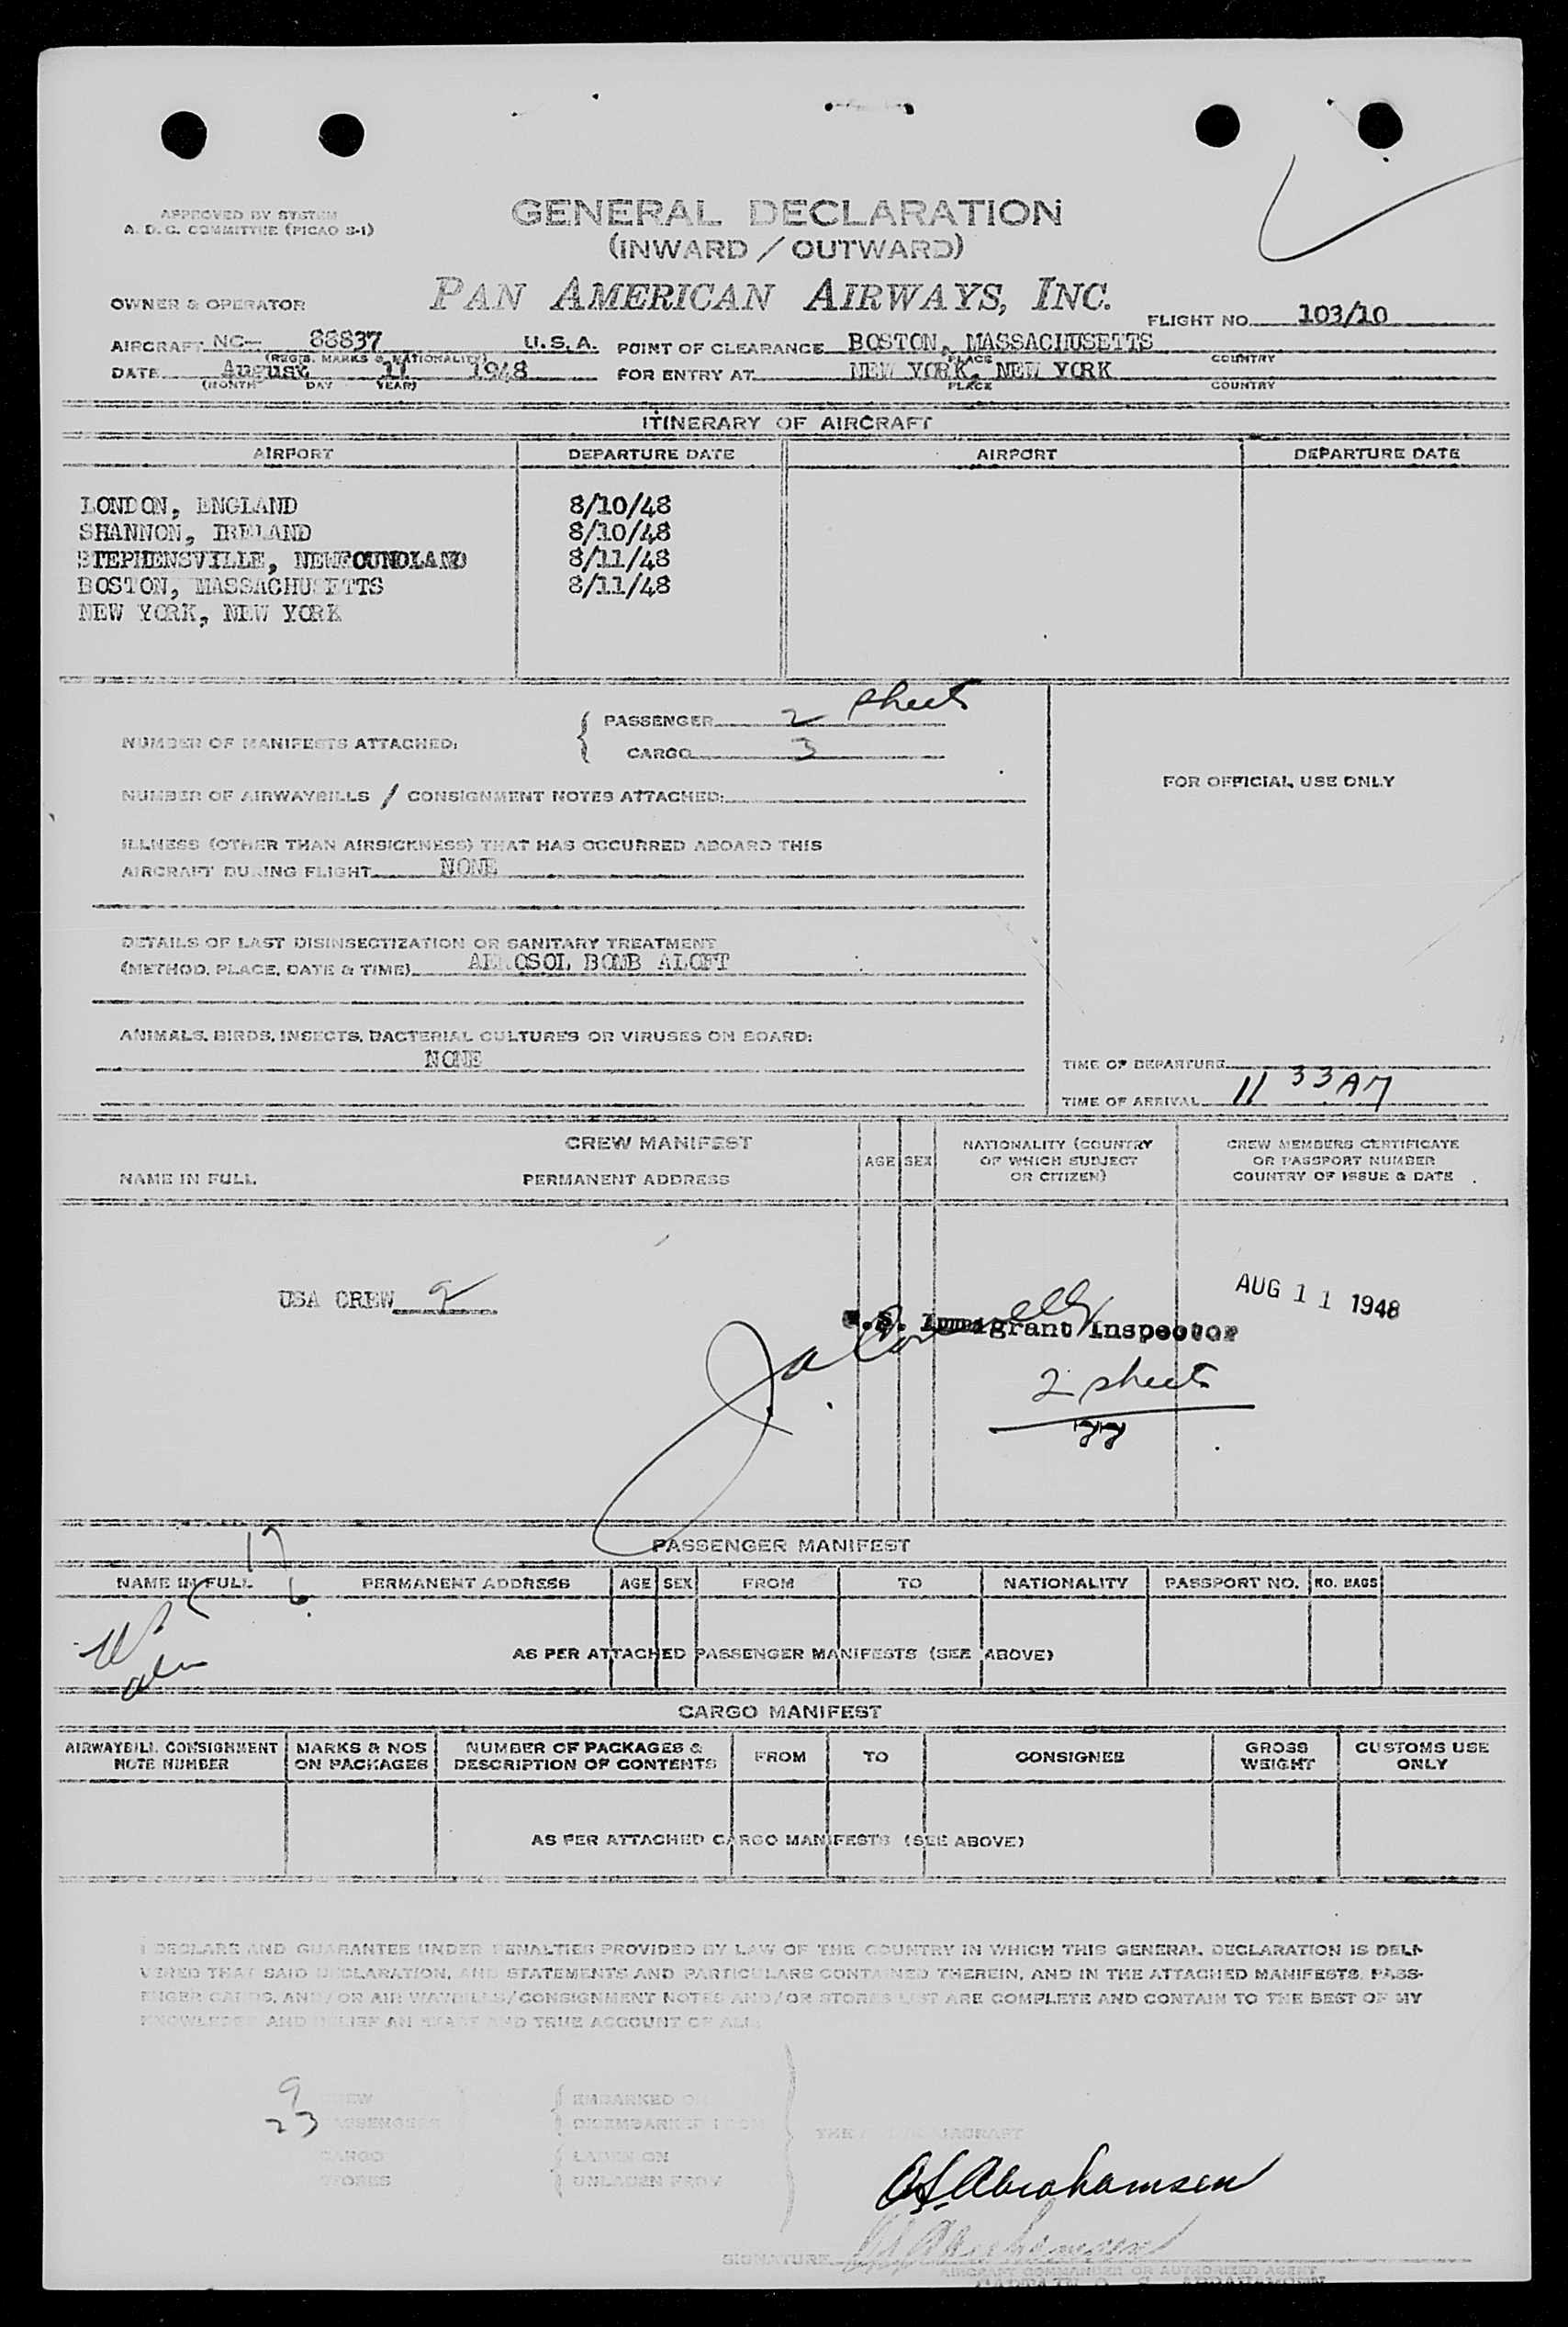 APPROVED BY SYSTEM
A. D. C. COMMITTEE (PICAO S-1)
GENERAL DECLARATION
(INWARD / OUTWARD)
OWNER & OPERATOR
PAN AMERICAN AIRWAYS, INC.
FLIGHT NO. 103/10
AIRCRAFT NC- 88837 U.S.A. POINT OF CLEARANCE BOSTON, MASSACHUSETTS
(REGIS. MARKS & NATIONALITY) PLACE COUNTRY
DATE August 11 1948 FOR ENTRY AT NEW YORK, NEW YORK
(MONTH DAY YEAR) PLACE COUNTRY
ITINERARY OF AIRCRAFT
AIRPORT DEPARTURE DATE AIRPORT DEPARTURE DATE
LONDON, ENGLAND 8/10/48
SHANNON, IRELAND 8/10/48
STEPHENSVILLE, NEWFOUNDLAND 8/11/48
BOSTON, MASSACHUSETTS 8/11/48
NEW YORK, NEW YORK
NUMBER OF MANIFESTS ATTACHED:
PASSENGER 2 sheets
CARGO 3
FOR OFFICIAL USE ONLY
NUMBER OF AIRWAYBILLS / CONSIGNMENT NOTES ATTACHED:
ILLNESS (OTHER THAN AIRSICKNESS) THAT HAS OCCURRED ABOARD THIS
AIRCRAFT DURING FLIGHT NONE
DETAILS OF LAST DISINSECTIZATION OR SANITARY TREATMENT
(METHOD, PLACE, DATE & TIME) AEROSOL BOMB ALOFT
ANIMALS, BIRDS, INSECTS, BACTERIAL CULTURES OR VIRUSES ON BOARD:
NONE
TIME OF DEPARTURE
TIME OF ARRIVAL 11 33 AM
CREW MANIFEST
NAME IN FULL PERMANENT ADDRESS
AGE SEX
NATIONALITY (COUNTRY
OF WHICH SUBJECT
OR CITIZEN)
CREW MEMBERS CERTIFICATE
OR PASSPORT NUMBER
COUNTRY OF ISSUE & DATE
USA CREW 9
AUG 11 1948
U.S. Immigrant Inspector
2 sheets
PASSENGER MANIFEST
17
NAME IN FULL PERMANENT ADDRESS AGE SEX FROM TO NATIONALITY PASSPORT NO. NO. BAGS
6
AS PER ATTACHED PASSENGER MANIFESTS (SEE ABOVE)
CARGO MANIFEST
AIRWAYBILL CONSIGNMENT
NOTE NUMBER
MARKS & NOS
ON PACKAGES
NUMBER OF PACKAGES &
DESCRIPTION OF CONTENTS
FROM TO CONSIGNEE
GROSS
WEIGHT
CUSTOMS USE
ONLY
AS PER ATTACHED CARGO MANIFESTS (SEE ABOVE)
I DECLARE AND GUARANTEE UNDER PENALTIES PROVIDED BY LAW OF THE COUNTRY IN WHICH THIS GENERAL DECLARATION IS DELI-
VERED THAT SAID DECLARATION, AND STATEMENTS AND PARTICULARS CONTAINED THEREIN, AND IN THE ATTACHED MANIFESTS, PASS-
ENGER CARDS, AND/OR AIR WAYBILLS/CONSIGNMENT NOTES AND/OR STORES LIST ARE COMPLETE AND CONTAIN TO THE BEST OF MY
KNOWLEDGE AND BELIEF AN EXACT AND TRUE ACCOUNT OF ALL
9 CREW EMBARKED ON
23 PASSENGERS DISEMBARKED FROM
THE AIRCRAFT
CARGO LADEN ON
STORES UNLADEN FROM
O S Abrahamsen
SIGNATURE
AIRCRAFT COMMANDER OR AUTHORIZED AGENT